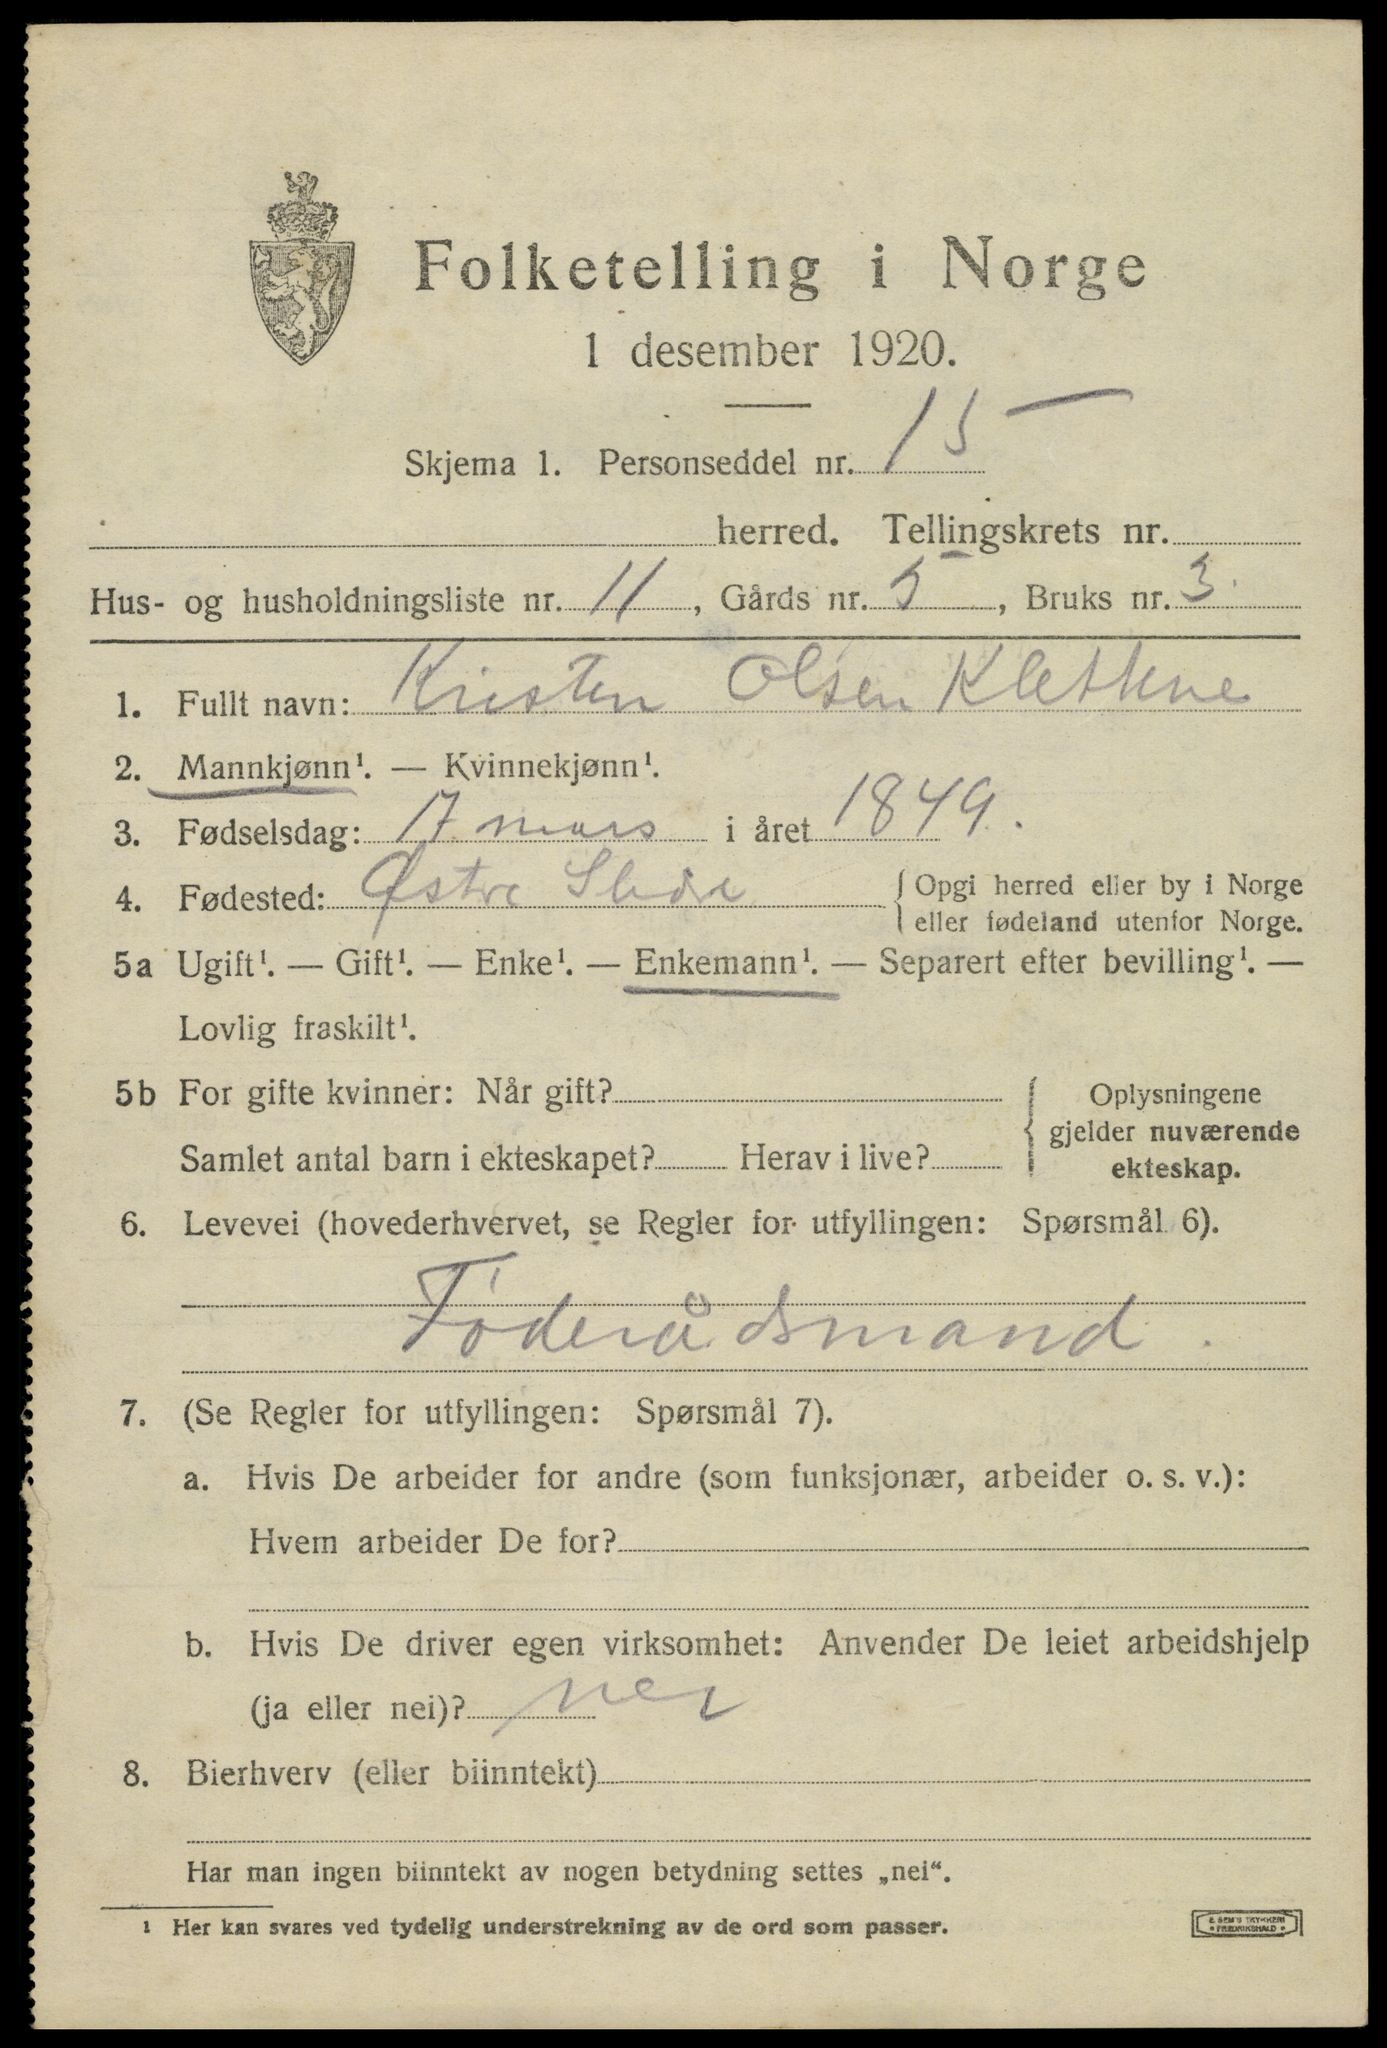 Folketelling i Norge
1 desember 1920.
Skjema 1. Personseddel nr. 15
herred. Tellingskrets nr.
Hus- og husholdningsliste nr. 11, Gårds nr. 5, Bruks nr. 3
1. Fullt navn: Kristen Olsen
2. Mannkjønn¹. — Kvinnekjønn¹.
3. Fødselsdag: 17 mars i året 1849.
4. Fødested: Østre Slidre { Opgi herred eller by i Norge
{ eller fødeland utenfor Norge.
5a Ugift¹. — Gift¹. — Enke¹. — Enkemann¹. — Separert efter bevilling¹. —
Lovlig fraskilt¹.
5b For gifte kvinner: Når gift? { Oplysningene
gjelder nuværende
Samlet antal barn i ekteskapet? Herav i live? ekteskap.
6. Levevei (hovederhvervet, se Regler for utfyllingen: Spørsmål 6).
Føderådsmand.
7. (Se Regler for utfyllingen: Spørsmål 7).
a. Hvis De arbeider for andre (som funksjonær, arbeider o. s. v.):
Hvem arbeider De for?
b. Hvis De driver egen virksomhet: Anvender De leiet arbeidshjelp
(ja eller nei)? nei
8. Bierhverv (eller biinntekt)
Har man ingen biinntekt av nogen betydning settes „nei“.
¹ Her kan svares ved tydelig understrekning av de ord som passer.
E SEM'S TRYKKERI
• FREDRIKSHALD •